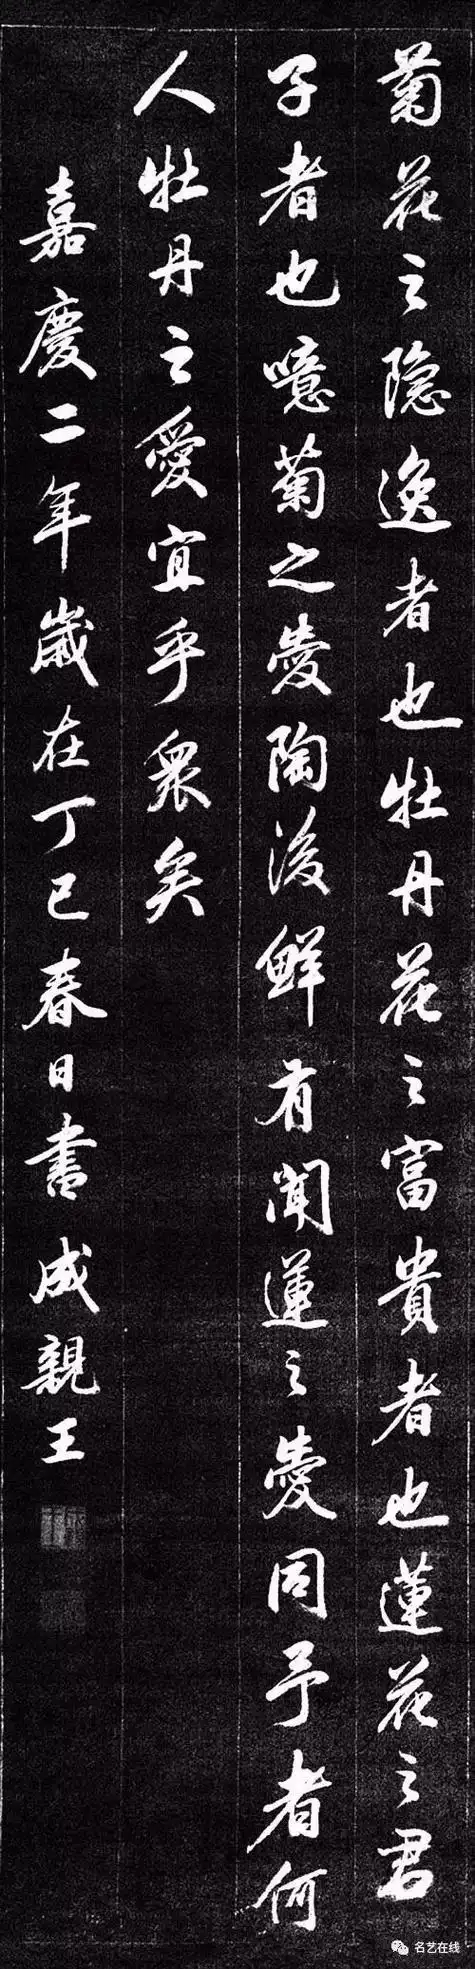 菊花之隐逸者也牡丹花之富貴者也蓮花之君
子者也噫菊之愛陶後鮮有聞蓮之愛同予者何
人牡丹之愛宜乎眾矣
嘉慶二年歲在丁巳春日書成親王
名艺在线